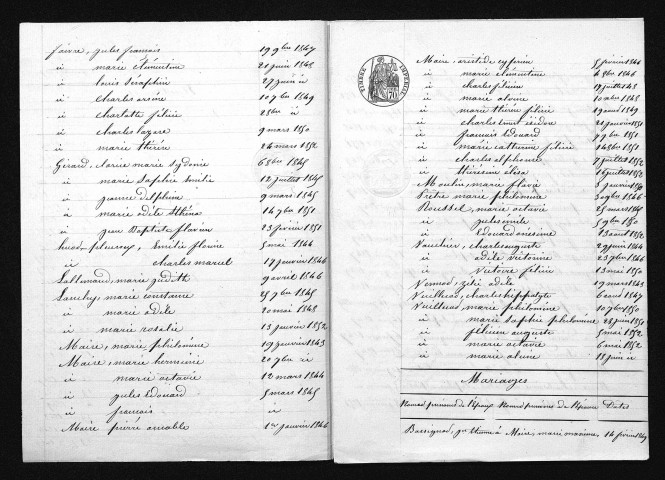 faivre, jules francois 19 9bre 1847
id marie clémentine 21 juin 1848
id louis Séraphin 27 juin id
id charles arsène 10 7bre 1849
id charlotte félicie 28bre id
id charles lazare 9 mars 1850
id marie thérèse 24 mars 1852
Gérard, marie sydonie 6 8bre 1845
id marie Saphélie Emilie 12 juillet 1845
id jeanne delphine 9 mars 1845
id marie adèle 14 7bre 1851
id jean Baptiste flavien 23 février 1851
Emilie flavie 5 mai 1844
id charles marcel 17 janvier 1846
Lallemand, marie judith 9 avril 1846
marie constance 25 7bre 1845
id marie adèle 20 mai 1848
id marie rosalie 13 janvier 1852
Maire, marie philomène 19 janvier 1843
Maire, marie herminie 20 7bre id
id marie octavie 12 mars 1844
id jules Edouard 5 mars 1845
id francois id
Maire pierre aimable 1er janvier 1846
TIMBRE IMPERIAL
70
Maire, aristide cyprien 5 février 1846
id marie clémentine 4 8bre 1846
id charles 19 juillet 1848
id marie 10 1848
id marie thérèse félicie 19 aout 1849
id charles isidore 21 janvier 1851
id francois Edouard 7 9bre 1851
id marie catherine félicie 14 8bre 1851
id charles alphonse 7 juillet 1852
id thérésine élisa 16 juillet 1852
Moulin, marie flavie 5 janvier 1850
marie philomène 30 9bre 1846
Roussel, marie octavie 25 mars 1848
id jules émile 5 9bre 1850
id Edouard onésime 13 aout 1852
Vauchier, charles auguste 29 juin 1844
id adèle victorine 23 9bre 1846
id Victoire félicie 13 mai 1850
zélie adèle 19 mars 1843
Vuilhaud, charles hippolyte 6 aout 1847
Vuilhaud, marie philomène 10 7bre 1850
id marie Saphie philomène 28 juin 1851
id félicien auguste 5 mai 1852
id marie octavie 6 mai 1852
id marie 18 juin id
Mariages
Noms et prénoms de l'époux Noms et prénoms de l'épouse Dates
à Maire, marie maxime, 14 février 1849